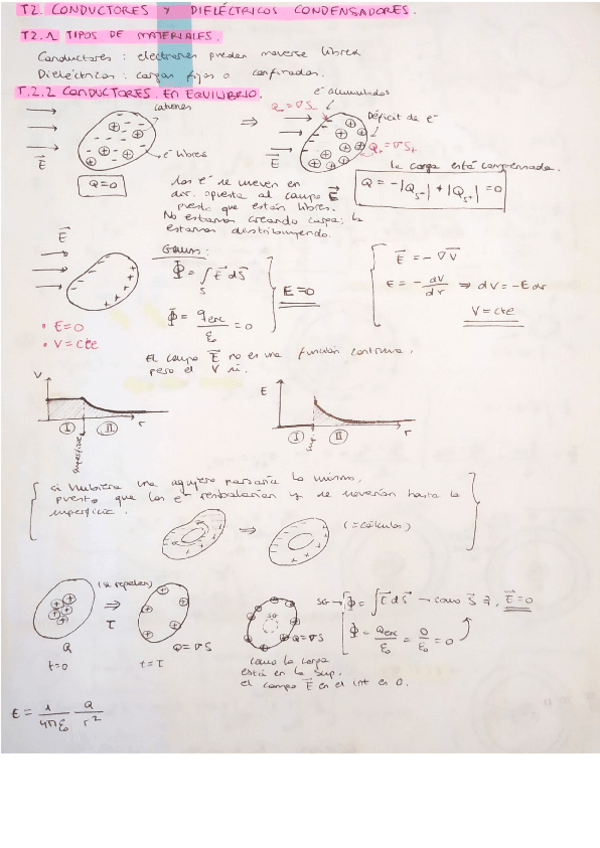 T2. CONDUCTORES Y DIELÉCTRICOS CONDENSADORES.
T2.1 TIPOS DE MATERIALES.
Conductores: electrones pueden moverse libres
Dieléctricos: cargas fijas o confinadas.
T.2.2 CONDUCTORES EN EQUILIBRIO.
cationes
e⁻ libres
E⃗
Q=0
⇒
e⁻ acumulados
Q₋=∇S₋
Déficit de e⁻
Q₊=∇S₊
E⃗
la carga está compensada.
Q = -|Qs-| + |Qs+| = 0
Los e⁻ se mueven en
dir. opuesta al campo E⃗
puesto que están libres.
No estamos creando carga; la
estamos distribuyendo.
E⃗
• E=0
• V=cte
Gauss:
Φ = ∫ E⃗ dS⃗
S
Φ = qenc/ε₀ = 0
E=0
E⃗ = -∇V⃗
E = - dV/dr ⇒ dV = -E dr
V=cte
El campo E⃗ no es una función continua,
pero el V si.
V
I II r
superficie
E
I II r
Sup
si hubiera una agujero pasaría lo mismo,
puesto que los e⁻ resbalarían y se moverían hasta la
superficie.
⇒ (=cálculos)
(se repelen)
⇒
τ
Q
t=0
Q=∇S
t=τ
SG
Q=∇S
SG → Φ = ∫ E⃗ dS⃗ → como S⃗ ∄, E⃗=0
Φ = Qenc/ε₀ = 0/ε₀ = 0
como la carga
está en la sup.
el campo E⃗ en el int es 0.
E = 1/4πε₀ Q/r²